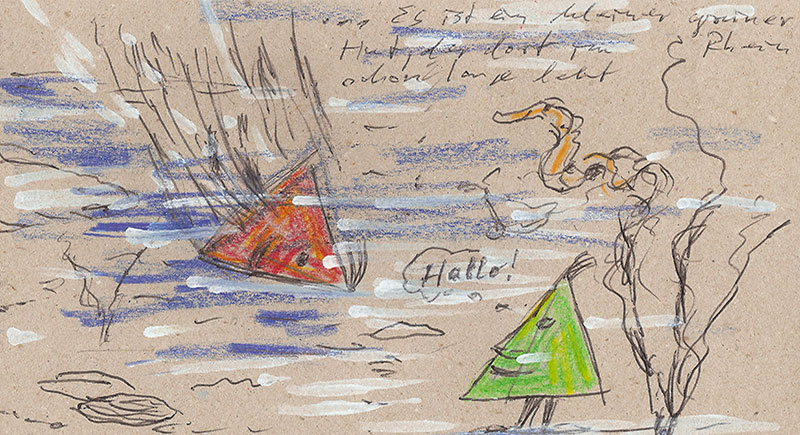 ... Es ist ein kleiner grüner
Hut, der dort im Rhein
schon lange lebt
Hallo!